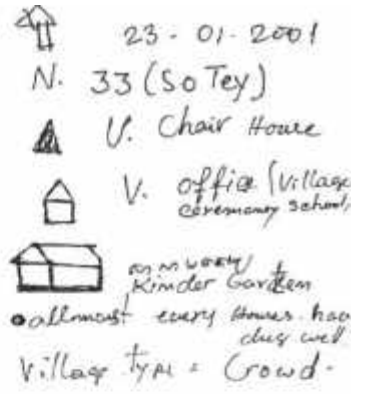 23 - 01 - 2001
N. 33 (So Tey)
V. Chair House
V. office (Village
ceremoney school,
Kinder Garten
allmoust every Houses hav
dug well
Village type = Crowd.